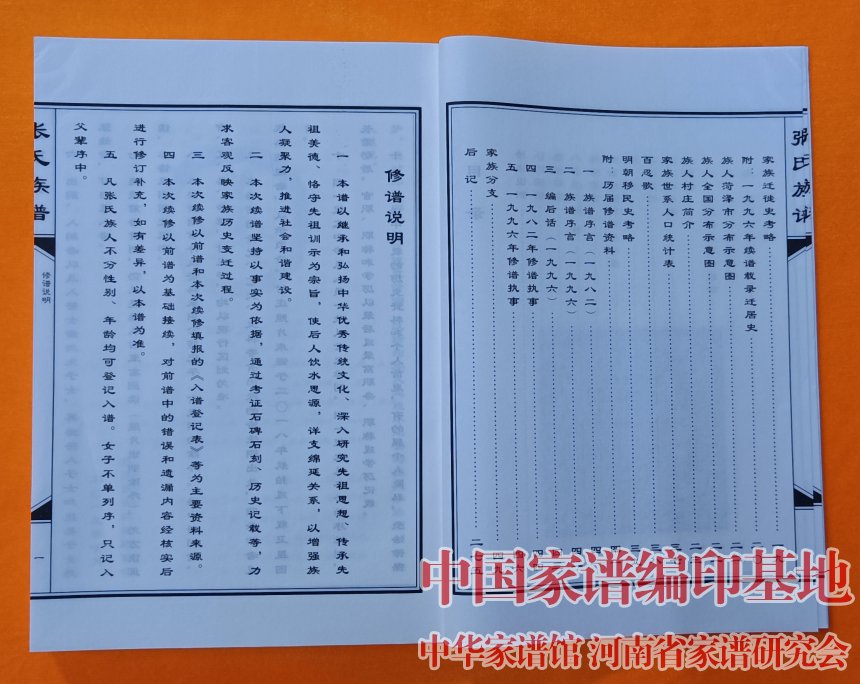 张氏族谱
家族迁徙史考略
附：一九九六年续谱载录迁居史
族人菏泽市分布示意图
族人全国分布示意图
族人村庄简介
家族世系人口统计表
百忍歌
明朝移民史考略
附：历届修谱资料
一 族谱序言（一九八二）
二 族谱序言（一九九六）
三 编后话（一九九六）
四 一九八二年修谱执事
五 一九九六年修谱执事
家族分支
后记
修谱说明
一 本谱以继承和弘扬中华优秀传统文化、深入研究先祖思想、传承先
祖美德、恪守先祖训示为宗旨，使后人饮水思源，详支绵延关系，以增强族
人凝聚力，推进社会和谐建设。
二 本次续谱坚持以事实为依据，通过考证石碑石刻、历史记载等，力
求客观反映家族历史变迁过程。
三 本次续修以前谱和本次续修填报的《入谱登记表》等为主要资料来源。
四 本次续修以前谱为基础接续，对前谱中的错误和遗漏内容经核实后
进行修订补充，如有差异，以本谱为准。
五 凡张氏族人不分性别、年龄均可登记入谱。女子不单列序，只记入
父辈序中。
张氏族谱
修谱说明
一
中国家谱编印基地
中华家谱馆 河南省家谱研究会